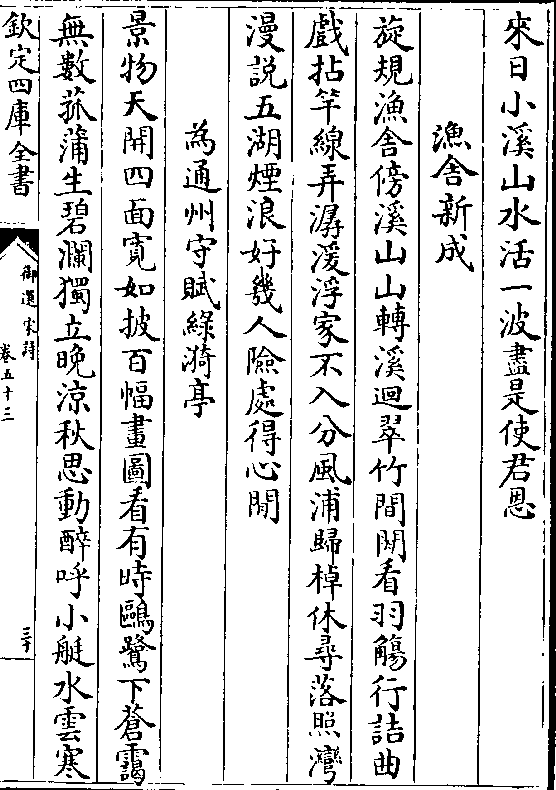 來日小溪山水活一波盡是使君恩
漁舎新成
旋規漁舎傍溪山山轉溪迴翠竹間閒看羽觴行詰曲
戲拈竿線弄潺湲浮家不入分風浦歸棹休尋落照灣
漫說五湖煙浪好幾人險處得心閒
為通州守賦綠漪亭
景物天開四面寛如披百幅畫圖看有時鷗鷺下蒼靄
無數菰蒲生碧瀾獨立晩涼秋思動醉呼小艇水雲寒
欽定四庫全書
御選宋詩
卷五十三
三十